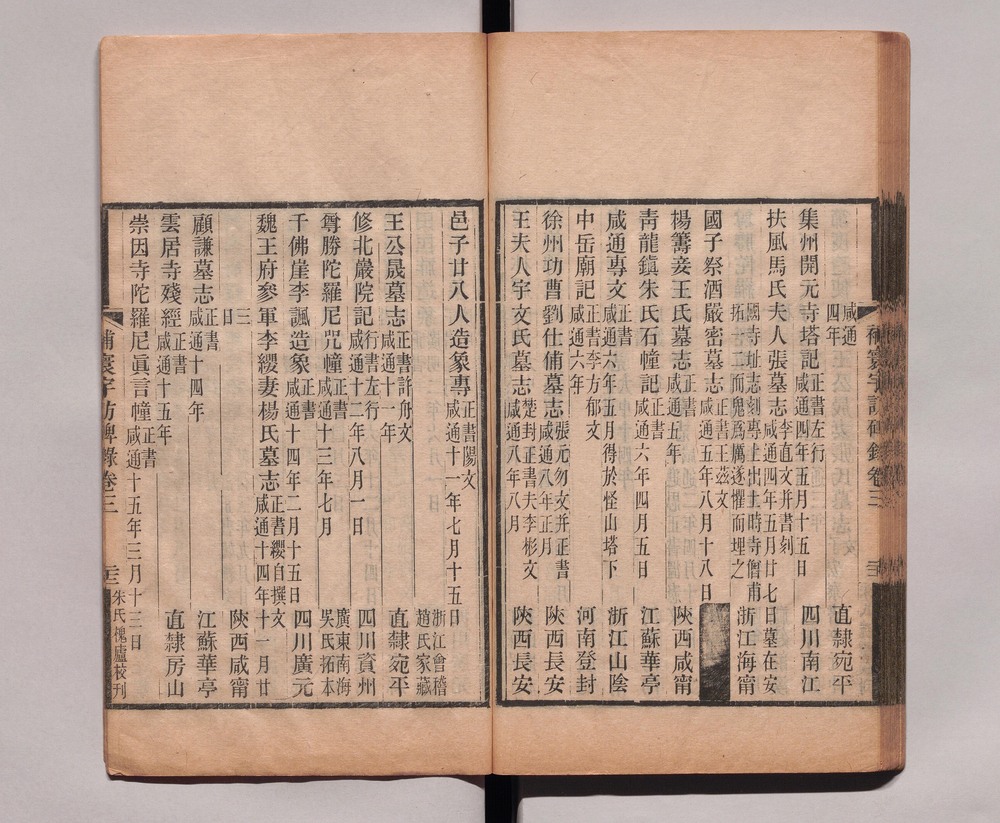 咸通四年 直隸宛平
集州開元寺塔記 正書左行 咸通四年五月十五日 四川南江
扶風馬氏夫人張墓志 李直文并書刻 咸通四年五月廿七日墓在安
國寺址志刻專上出土時寺僧甫拓十二而鬼爲厲遂懼而埋之 浙江海甯
國子祭酒嚴密墓志 正書王茲文 咸通五年八月十八日
楊籌妾王氏墓志 正書 咸通五年 陝西咸甯
靑龍鎮朱氏石幢記 正書 咸通六年四月五日 江蘇華亭
咸通專文 正書 咸通六年五月得於怪山塔下 浙江山陰
中岳廟記 正書李方郁文 咸通六年 河南登封
徐州功曹劉仕俌墓志 張元勿文并正書 咸通八年正月 陝西長安
王夫人宇文氏墓志 楚封正書夫李彬文 咸通八年八月 陝西長安
補寰宇訪碑錄卷三 三三
邑子廿八人造象專 正書陽文 咸通十一年七月十五日 浙江會稽趙氏家藏
王公晟墓志 正書許舟文 咸通十一年 直隸宛平
修北巖院記 行書左行 咸通十二年八月一日 四川資州
尊勝陀羅尼咒幢 正書 咸通十三年七月 廣東南海吳氏拓本
千佛崖李諷造象 正書 咸通十四年二月十五日 四川廣元
魏王府參軍李纓妻楊氏墓志 正書纓自撰文 咸通十四年十一月廿
三日 陝西咸甯
顧謙墓志 正書 咸通十四年 江蘇華亭
雲居寺殘經 正書 咸通十五年 直隸房山
崇因寺陀羅尼眞言幢 正書 咸通十五年三月十三日
補寰宇訪碑錄卷三 三三 朱氏槐廬校刊